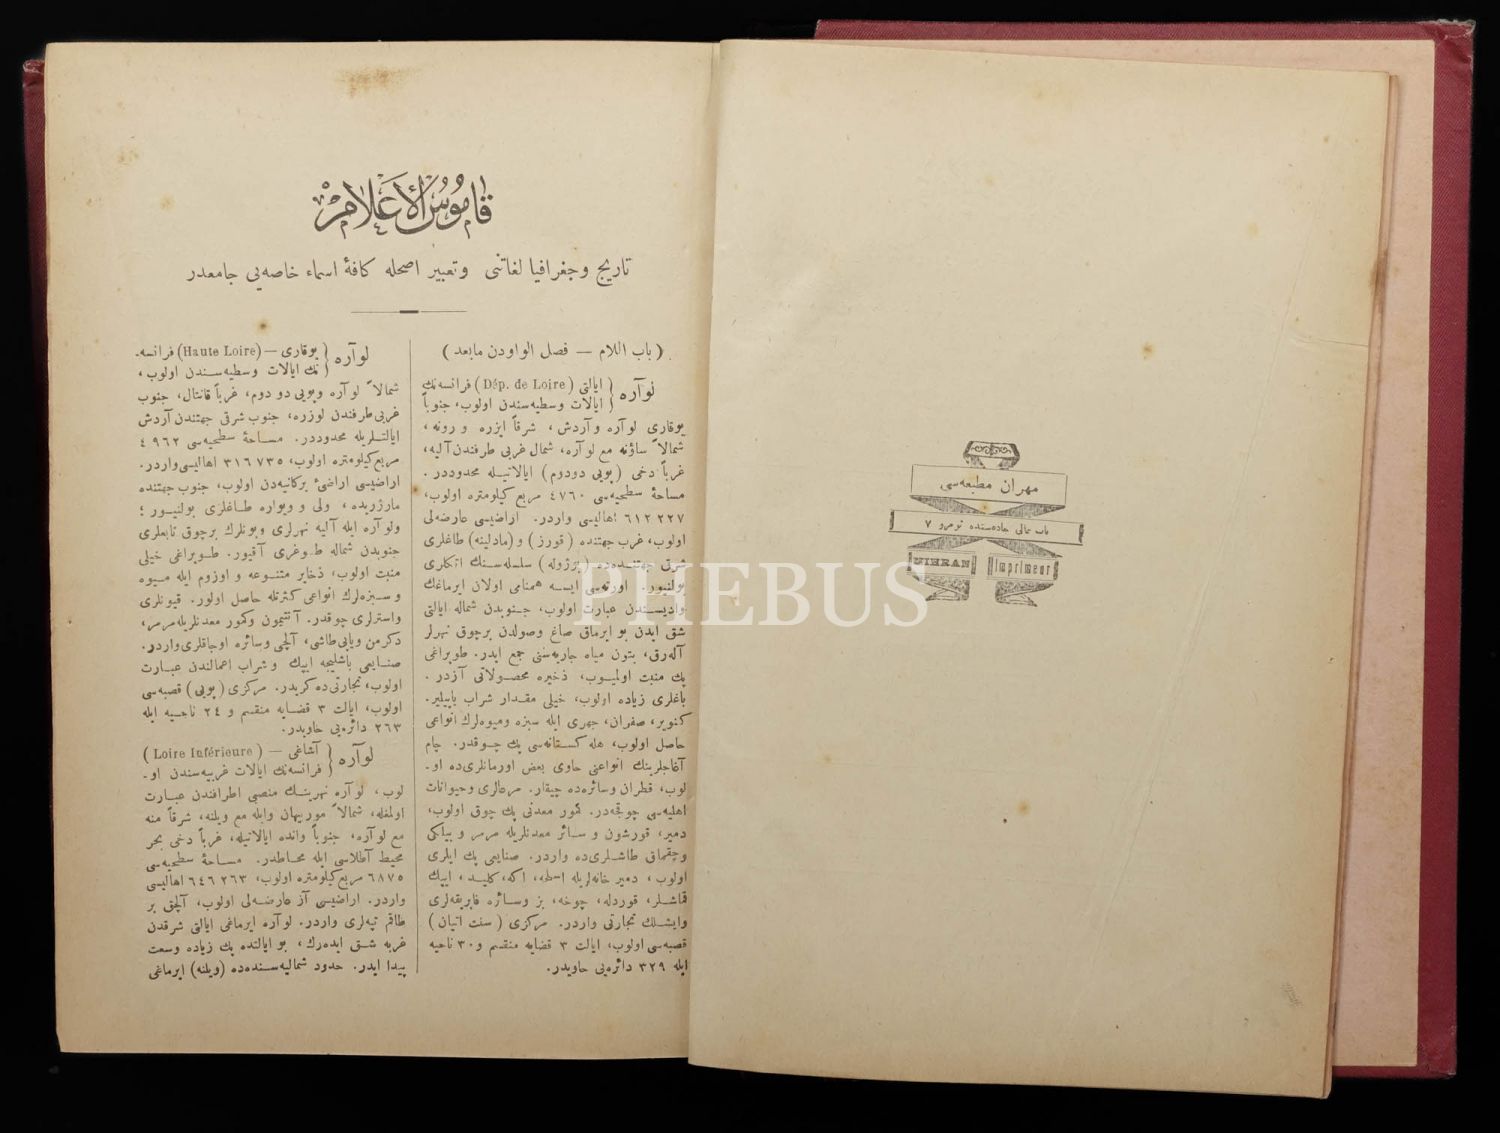 قاموس الأعلام
تاريخ و جغرافيا لغاتنى و تعبير اصحله كافۀ اسماء خاصه‌يى جامعدر
( باب اللام — فصل الواودن مابعد )
لوآره ( ايالتى (Dép. de Loire) فرانسه‌نك
ايالات وسطيه‌سندن اولوب، جنوباً
يوقارى لوآره وآردش ، شرقاً ايزره و رونه ،
شمالاً ساؤنه مع لوآره، شمال غربى طرفندن آليه،
غرباً دخى (پويى دودوم) ايالاتيله محدوددر .
مساحۀ سطحيه‌سى ٤٧٦٠ مربع كيلومتره اولوب،
٦١٢٢٢٧ اهاليسى واردر. اراضيسى عارضه‌لى
اولوب، غرب جهتنده (فورز) و (مادلينه) طاغلرى
شرقى جهتنده‌ده (بوژوله) سلسله‌سنك اتكلرى
بولنيور. اورته‌سى ايسه همنامى اولان ايرماغك
واديسندن عبارت اولوب، جنوبدن شماله ايالتى
شق ايدن بو ايرماق صاغ وصولدن برچوق نهرلر
آله‌رق، بتون مياه جاريه‌سنى جمع ايدر. طوپراغى
پك منبت اولميوب، ذخيره محصولاتى آزدر .
باغلرى زياده اولوب، خيلى مقدار شراب ياپيلير.
كنوير، صفران، جهرى ايله سبزه وميوه‌لرك انواعى
حاصل اولوب، هله كستانه‌سى پك چوقدر. چام
آغاجلرينك انواعنى حاوى بعض اورمانلرى‌ده او-
لوب، قطران وسائره‌ده چيقار. مرعالرى وحيوانات
اهليه‌سى چوقجه‌در. كمور معدنى پك چوق اولوب،
دمير، قورشون و سائر معدنلريله مرمر و بيلكى
وچقماق طاشلرى‌ده واردر. صنايعى پك ايلرى
اولوب ، دمير خانه‌لريله اسلحه، اكه، كليد، ايپك
قماشلر، قوردله، چوخه، بز وسائره فابريقه‌لرى
وايشلك تجارتى واردر. مركزى (سنت اتيان)
قصبه‌سى اولوب، ايالت ٣ قضايه منقسم و ٣٠ ناحيه
ايله ٣٢٩ دائره‌يى حاويدر.
لوآره ( يوقارى — (Haute Loire) فرانسه-
نك ايالات وسطيه‌سندن اولوب ،
شمالاً لوآره وپويى دو دوم، غرباً قانتال، جنوب
غربى طرفندن لوزره، جنوب شرقى جهتندن آردش
ايالتلريله محدوددر. مساحۀ سطحيه‌سى ٤٩٦٢
مربع كيلومتره اولوب، ٣١٦٧٣٥ اهاليسى واردر.
اراضيسى اراضئ بركانيه‌دن اولوب، جنوب جهتنده
مارژريده، ولى و ويواره طاغلرى بولنيور ؛
ولوآره ايله آليه نهرلرى وبونلرك برچوق تابعلرى
جنوبدن شماله طوغرى آقيور. طوپراغى خيلى
منبت اولوب، ذخاير متنوعه و اوزوم ايله ميوه
و سبزه‌لرك انواعى كثرتله حاصل اولور. قيونلرى
واسترلرى چوقدر. آنتيمون وكمور معدنلريله مرمر،
دكرمن وياپى طاشى، آلچى وسائره اوجاقلرى واردر.
صنايعى باشليجه ايپك و شراب اعمالندن عبارت
اولوب، تجارتى‌ده كريدر. مركزى (پويى) قصبه‌سى
اولوب، ايالت ٣ قضايه منقسم و ٢٤ ناحيه ايله
٢٦٣ دائره‌يى حاويدر.
لوآره ( آشاغى — ( Loire Inférieure )
فرانسه‌نك ايالات غربيه‌سندن او-
لوب، لوآره نهرينك منصبى اطرافندن عبارت
اولمغله، شمالاً موربيهان وايله مع ويلنه، شرقاً منه
مع لوآره، جنوباً وانده ايالاتيله، غرباً دخى بحر
محيط آطلاسى ايله محاطدر. مساحۀ سطحيه‌سى
٦٨٧٥ مربع كيلومتره اولوب، ٦٤٦٢٦٣ اهاليسى
واردر. اراضيسى آز عارضه‌لى اولوب، آلچق بر
طاقم تپه‌لرى واردر. لوآره ايرماغى ايالتى شرقدن
غربه شق ايده‌رك، بو ايالتده پك زياده وسعت
پيدا ايدر. حدود شماليه‌سنده‌ده (ويلنه) ايرماغى
مهران مطبعه‌سى
باب عالى جاده‌سنده نومرو ٧
MIHRAN Imprimeur
PHEBUS